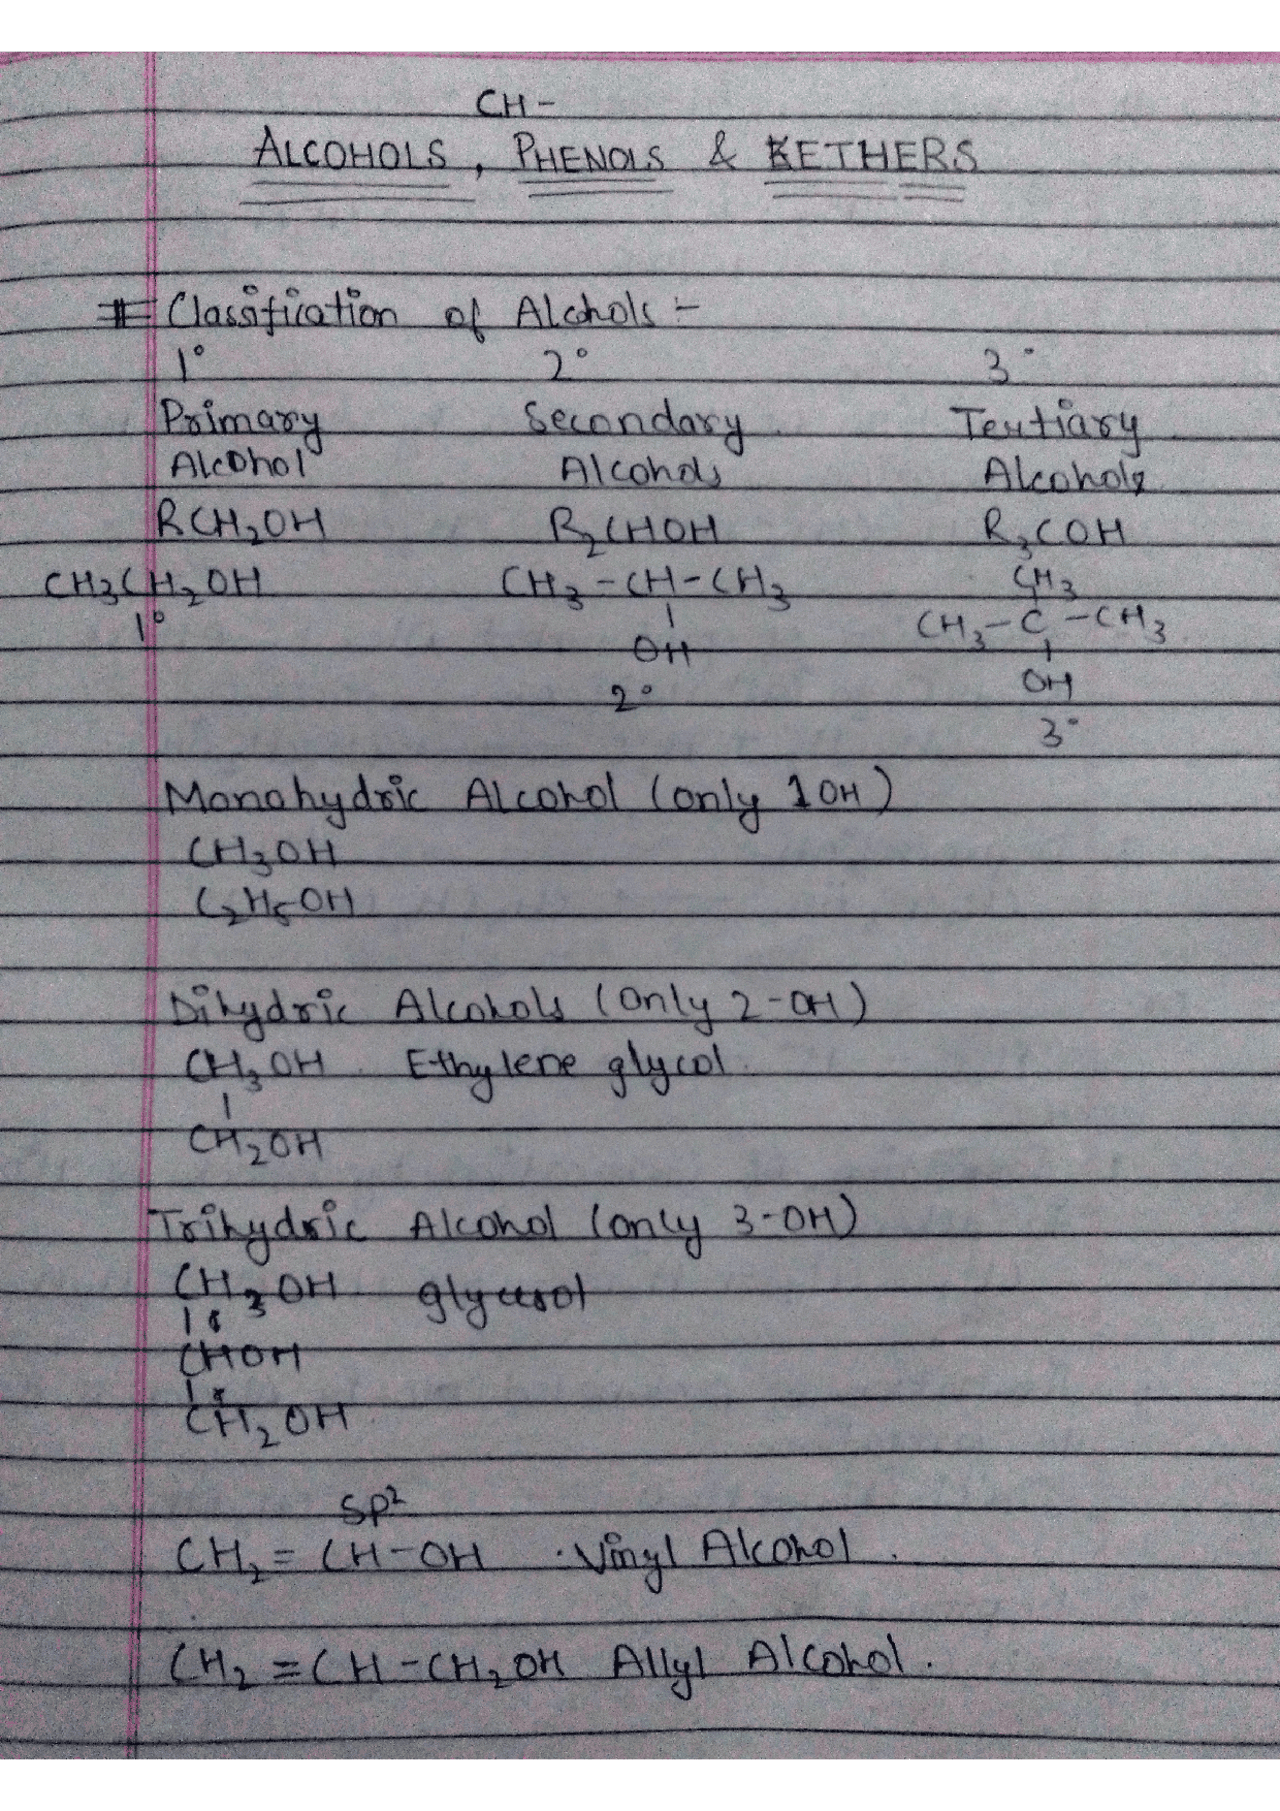 CH-
ALCOHOLS, PHENOLS & KETHERS
# Classification of Alchols :-
1° 2° 3°
Primary Secondary Tertiary
Alcohol Alcohols Alcohols
RCH₂OH R₂CHOH R₃COH
CH₃CH₂OH CH₃-CH-CH₃ CH₃
1° | CH₃-C-CH₃
OH |
2° OH
3°
Monohydric Alcohol (only 1 OH)
CH₃OH
C₂H₅OH
Dihydric Alcohols (only 2-OH)
CH₃OH Ethylene glycol.
|
CH₂OH
Trihydric Alcohol (only 3-OH)
CH₃OH glycerol
|
CHOH
|
CH₂OH
SP²
CH₂=CH-OH . Vinyl Alcohol.
CH₂=CH-CH₂OH Allyl Alcohol.